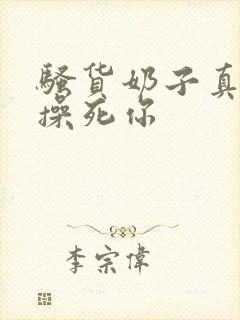 骚货奶子真
操死你
李宗伟